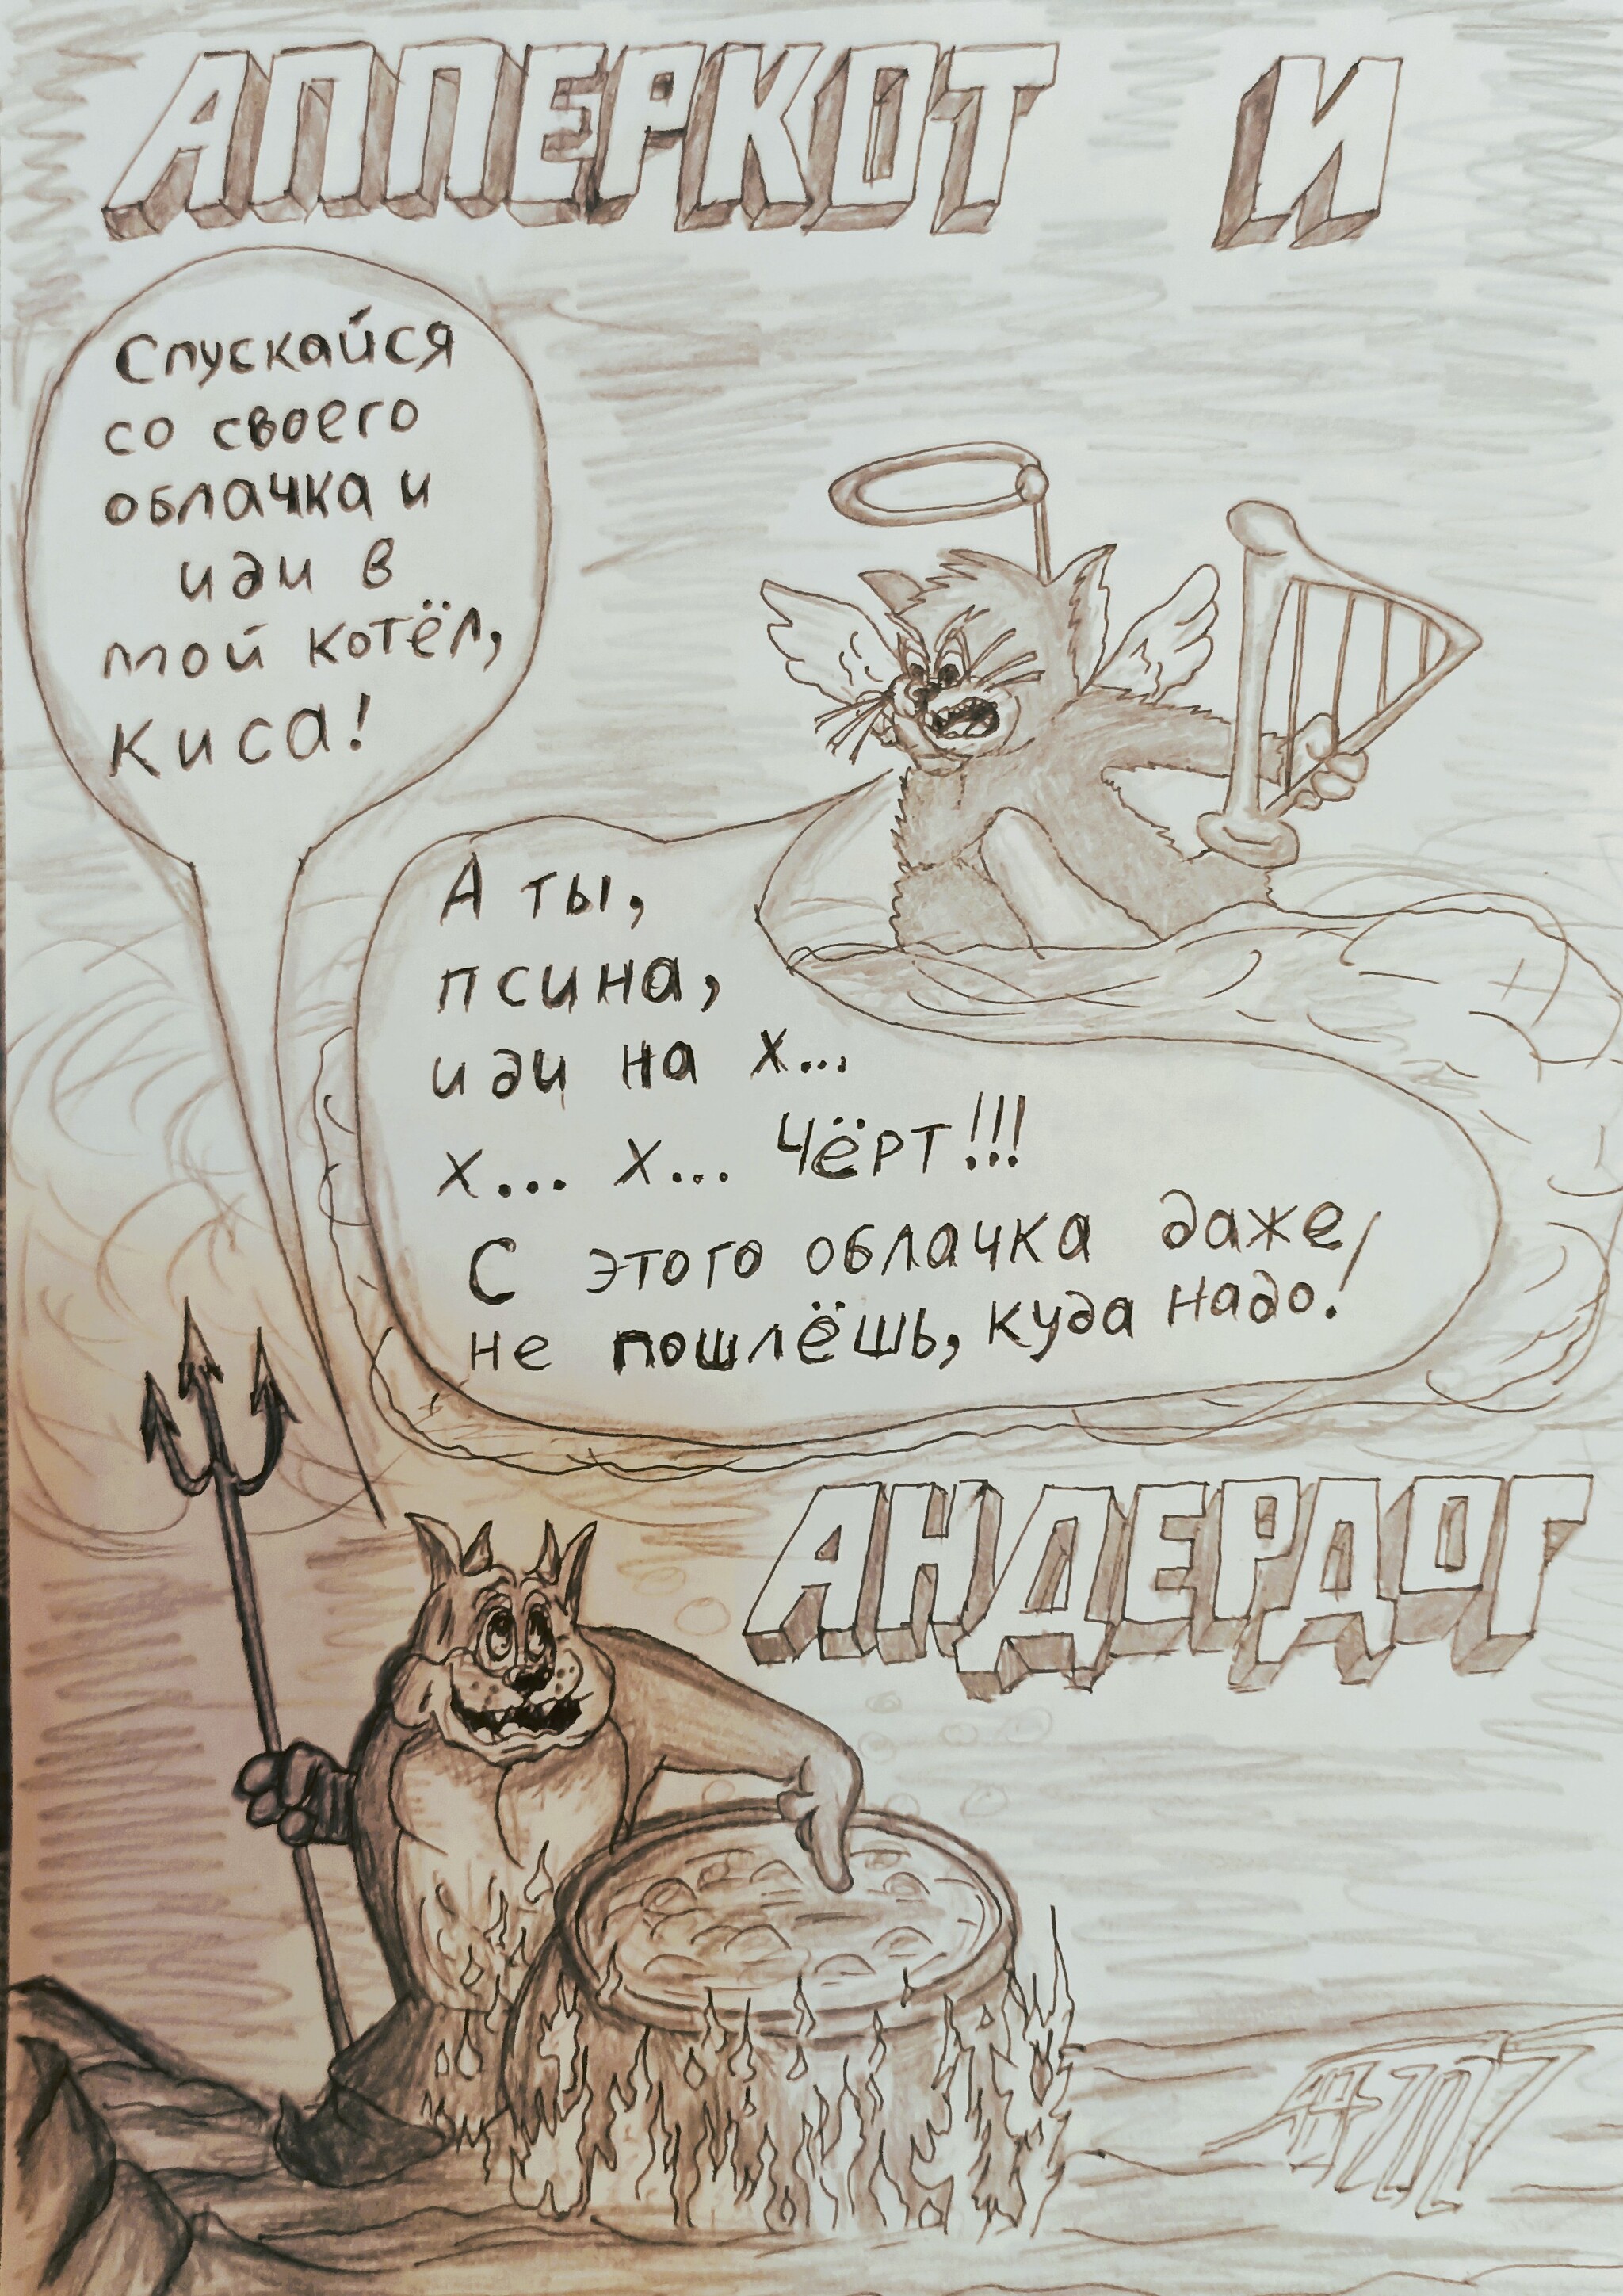 АППЕРКОТ И
Спускайся
со своего
облачка и
иди в
мой котёл,
Киса!
А ты,
псина,
иди на х...
х... х... Чёрт!!!
С этого облачка даже
не пошлёшь, куда надо!
АНДЕРДОГ